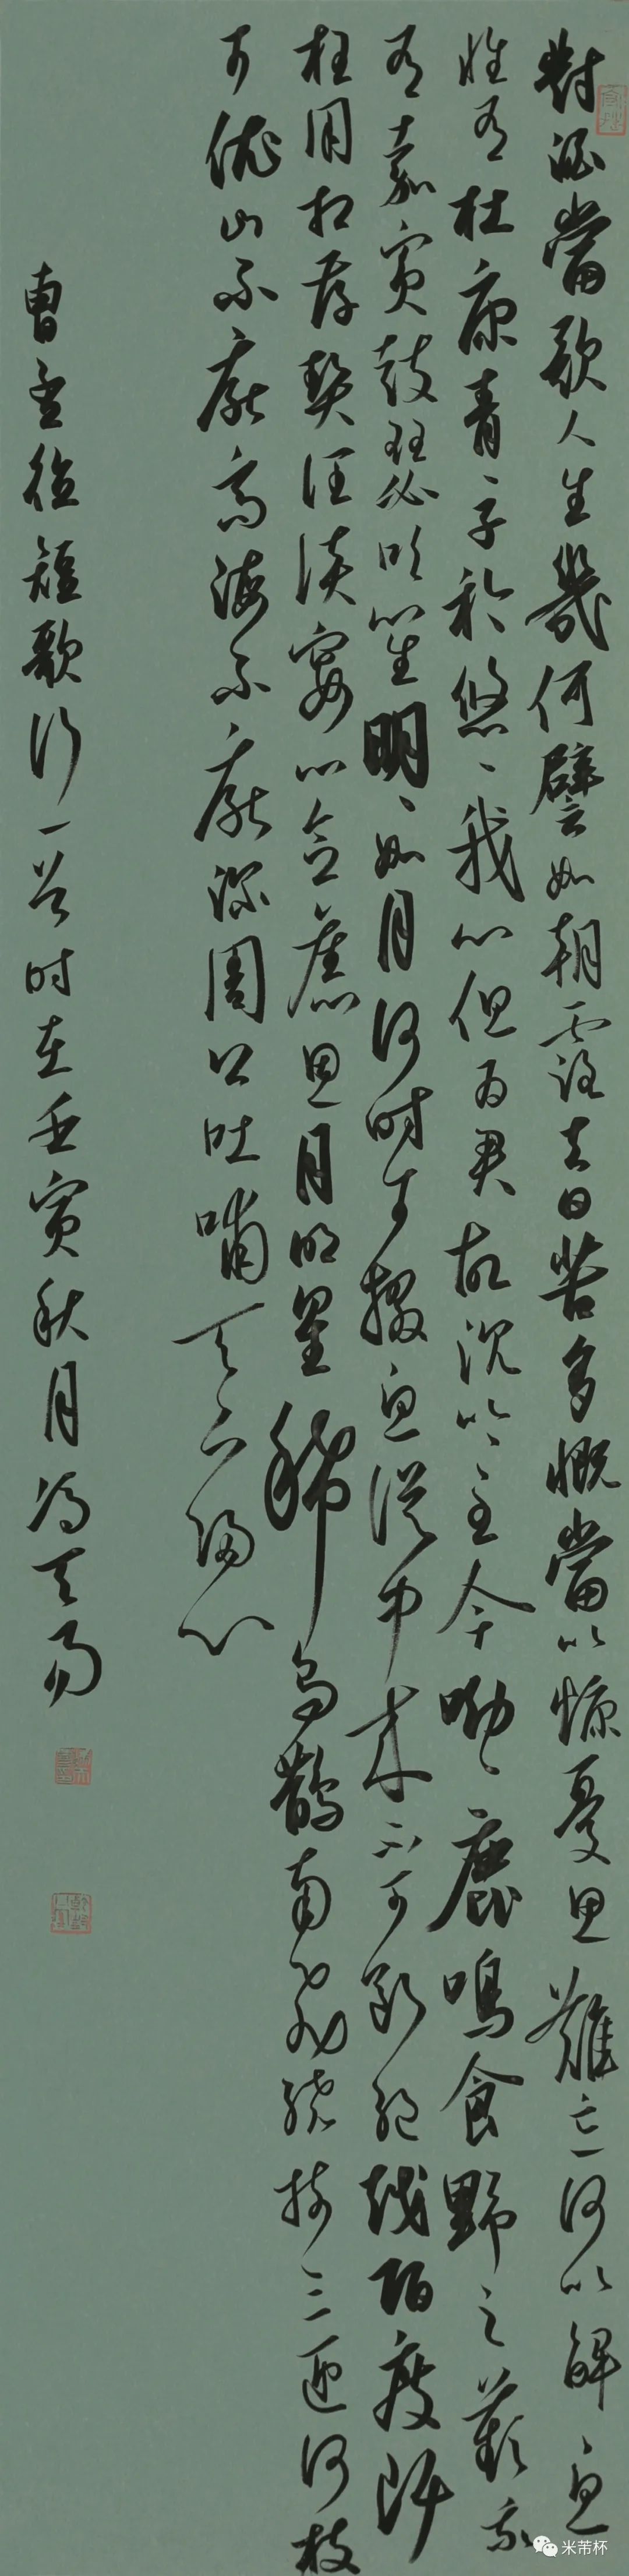 對酒當歌人生幾何譬如朝露去日苦多慨當以慷憂思難忘何以解憂
惟有杜康青〻子衿悠〻我心但為君故沉吟至今呦〻鹿鳴食野之蘋我
有嘉賓鼓瑟吹笙明〻如月何時可掇憂從中來不可斷絕越陌度阡
枉用相存契闊談宴心念舊恩月明星稀烏鵲南飛繞樹三匝何枝
可依山不厭高海不厭深周公吐哺天下歸心
曹孟德短歌行一首时在壬寅秋月馮天易
米芾杯